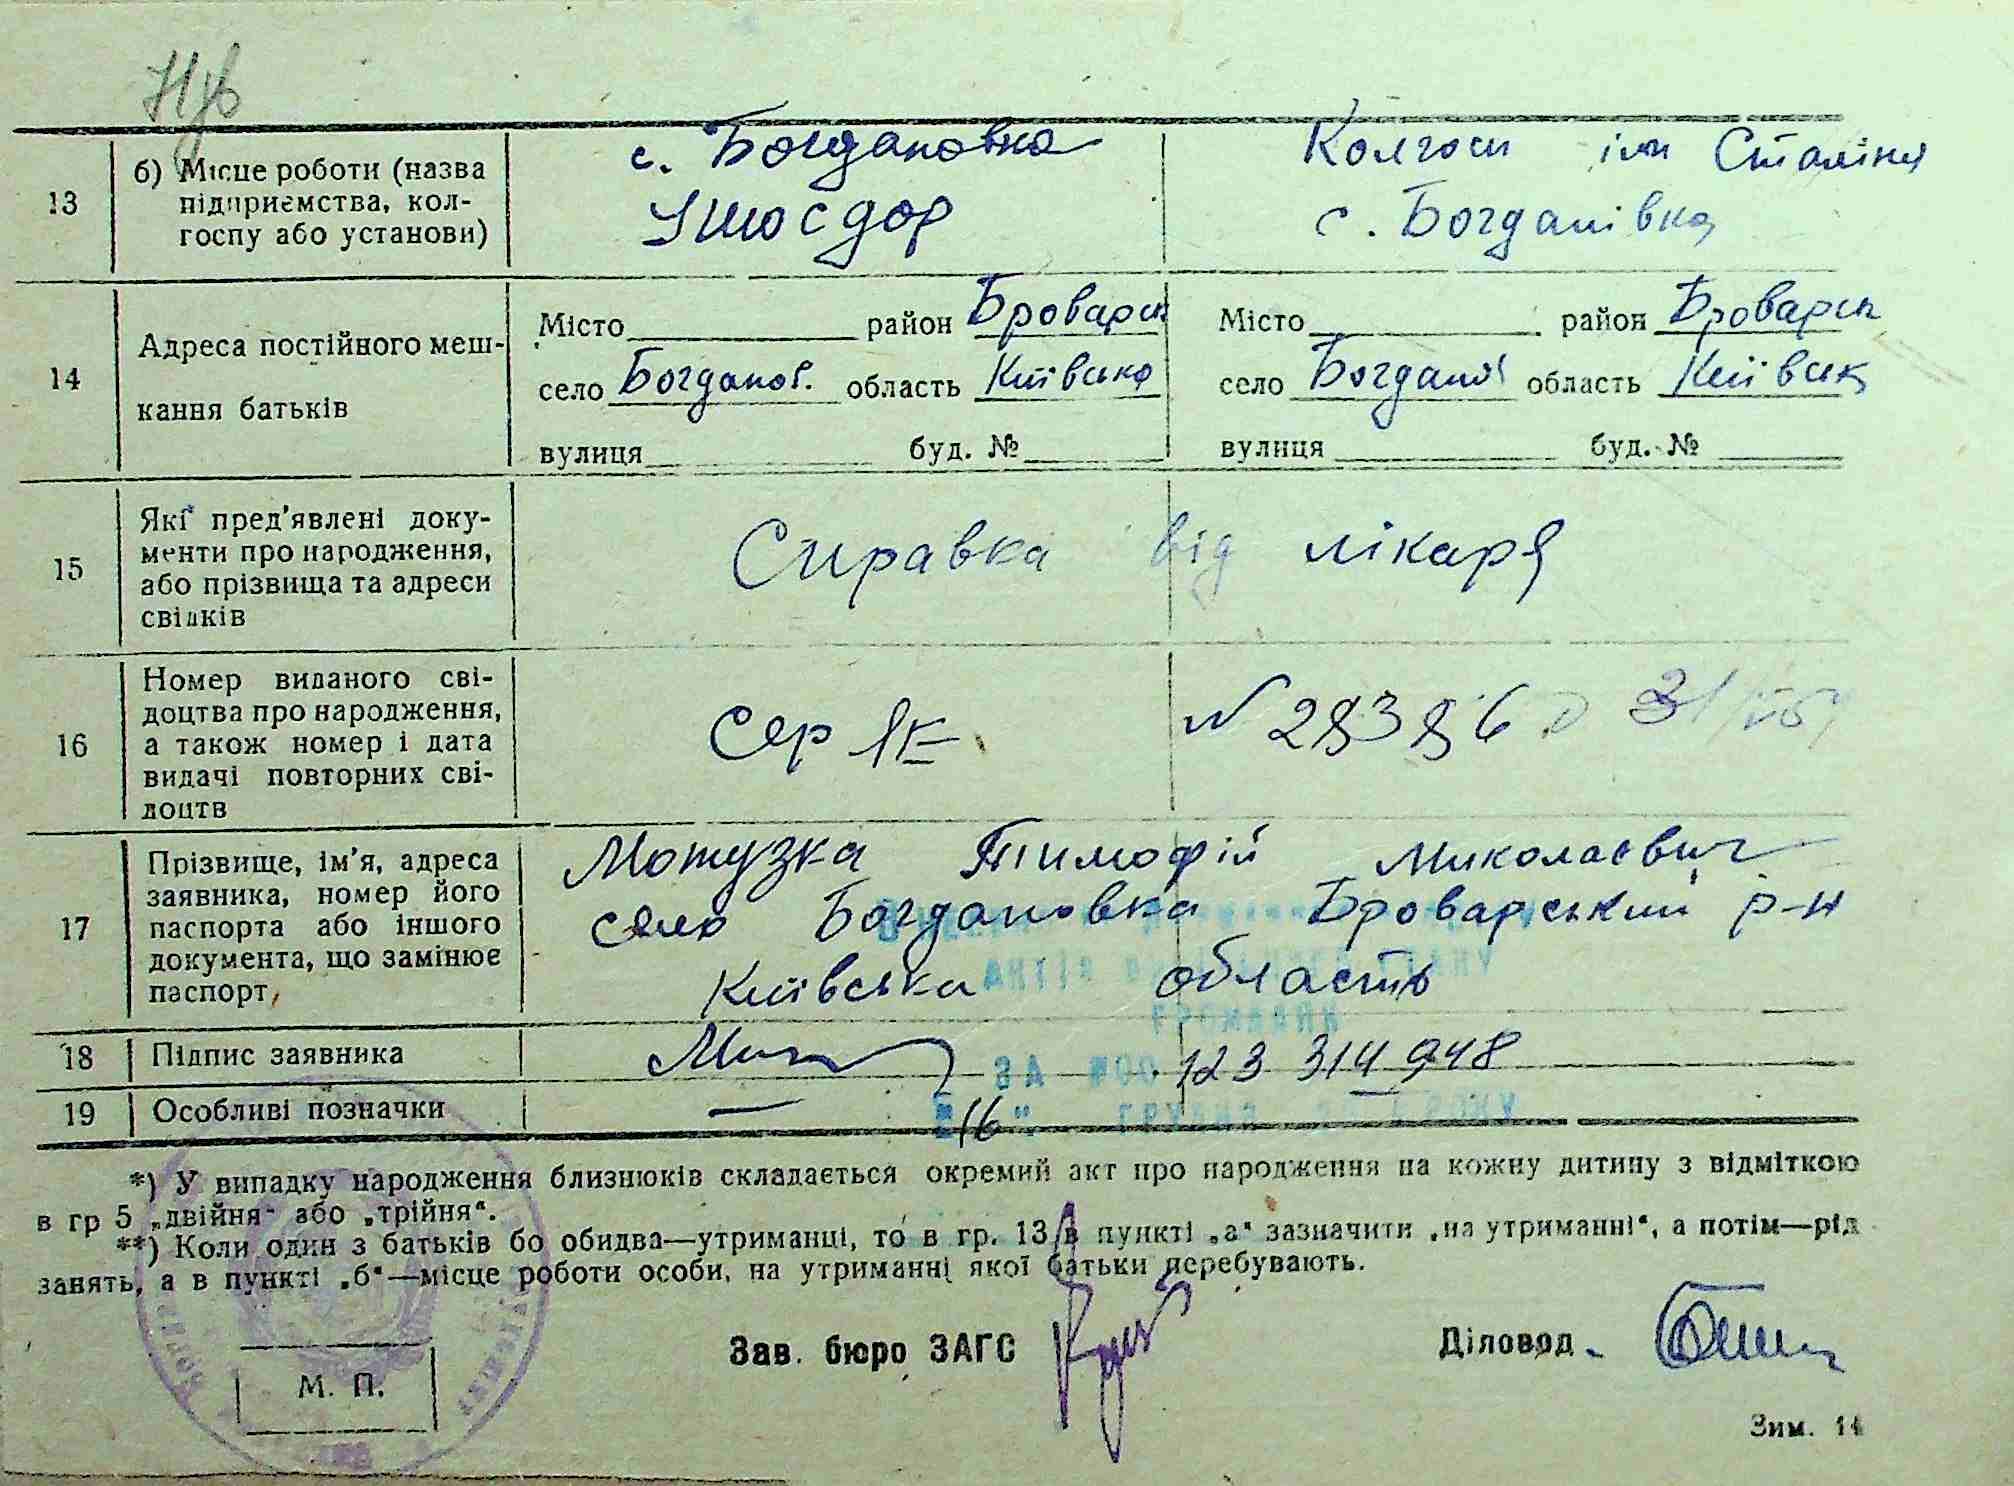 13
б) Місце роботи (назва
підприємства, кол-
госпу або установи)
с. Богдановка
Ушосдор
Колгосп ім Сталіна
с. Богданівка
14
Адреса постійного меш-
кання батьків
Місто район Броварск
село Богданов. область Київська
вулиця буд. №
Місто район Броварск
село Богданів область Київськ
вулиця буд. №
15
Які пред'явлені доку-
менти про народження,
або прізвища та адреси
свідків
Справка від лікаря
16
Номер виданого сві-
доцтва про народження,
а також номер і дата
видачі повторних сві-
доцтв
Сер ЯК № 283886
17
Прізвище, ім'я, адреса
заявника, номер його
паспорта або іншого
документа, що замінює
паспорт,
Мотузка Тимофій Миколаєвич
село Богдановка Броварський р-н
Київська область
18
Підпис заявника
123 314 948
19
Особливі позначки
—
16
*) У випадку народження близнюків складається окремий акт про народження на кожну дитину з відміткою
в гр 5 „двійня“ або „трійня“.
**) Коли один з батьків бо обидва—утриманці, то в гр. 13 в пункті „а“ зазначити „на утриманні“, а потім—рід
занять, а в пункті „б“—місце роботи особи, на утриманні якої батьки перебувають.
Зав. бюро ЗАГС
Діловод
М. П.
Зим. 14